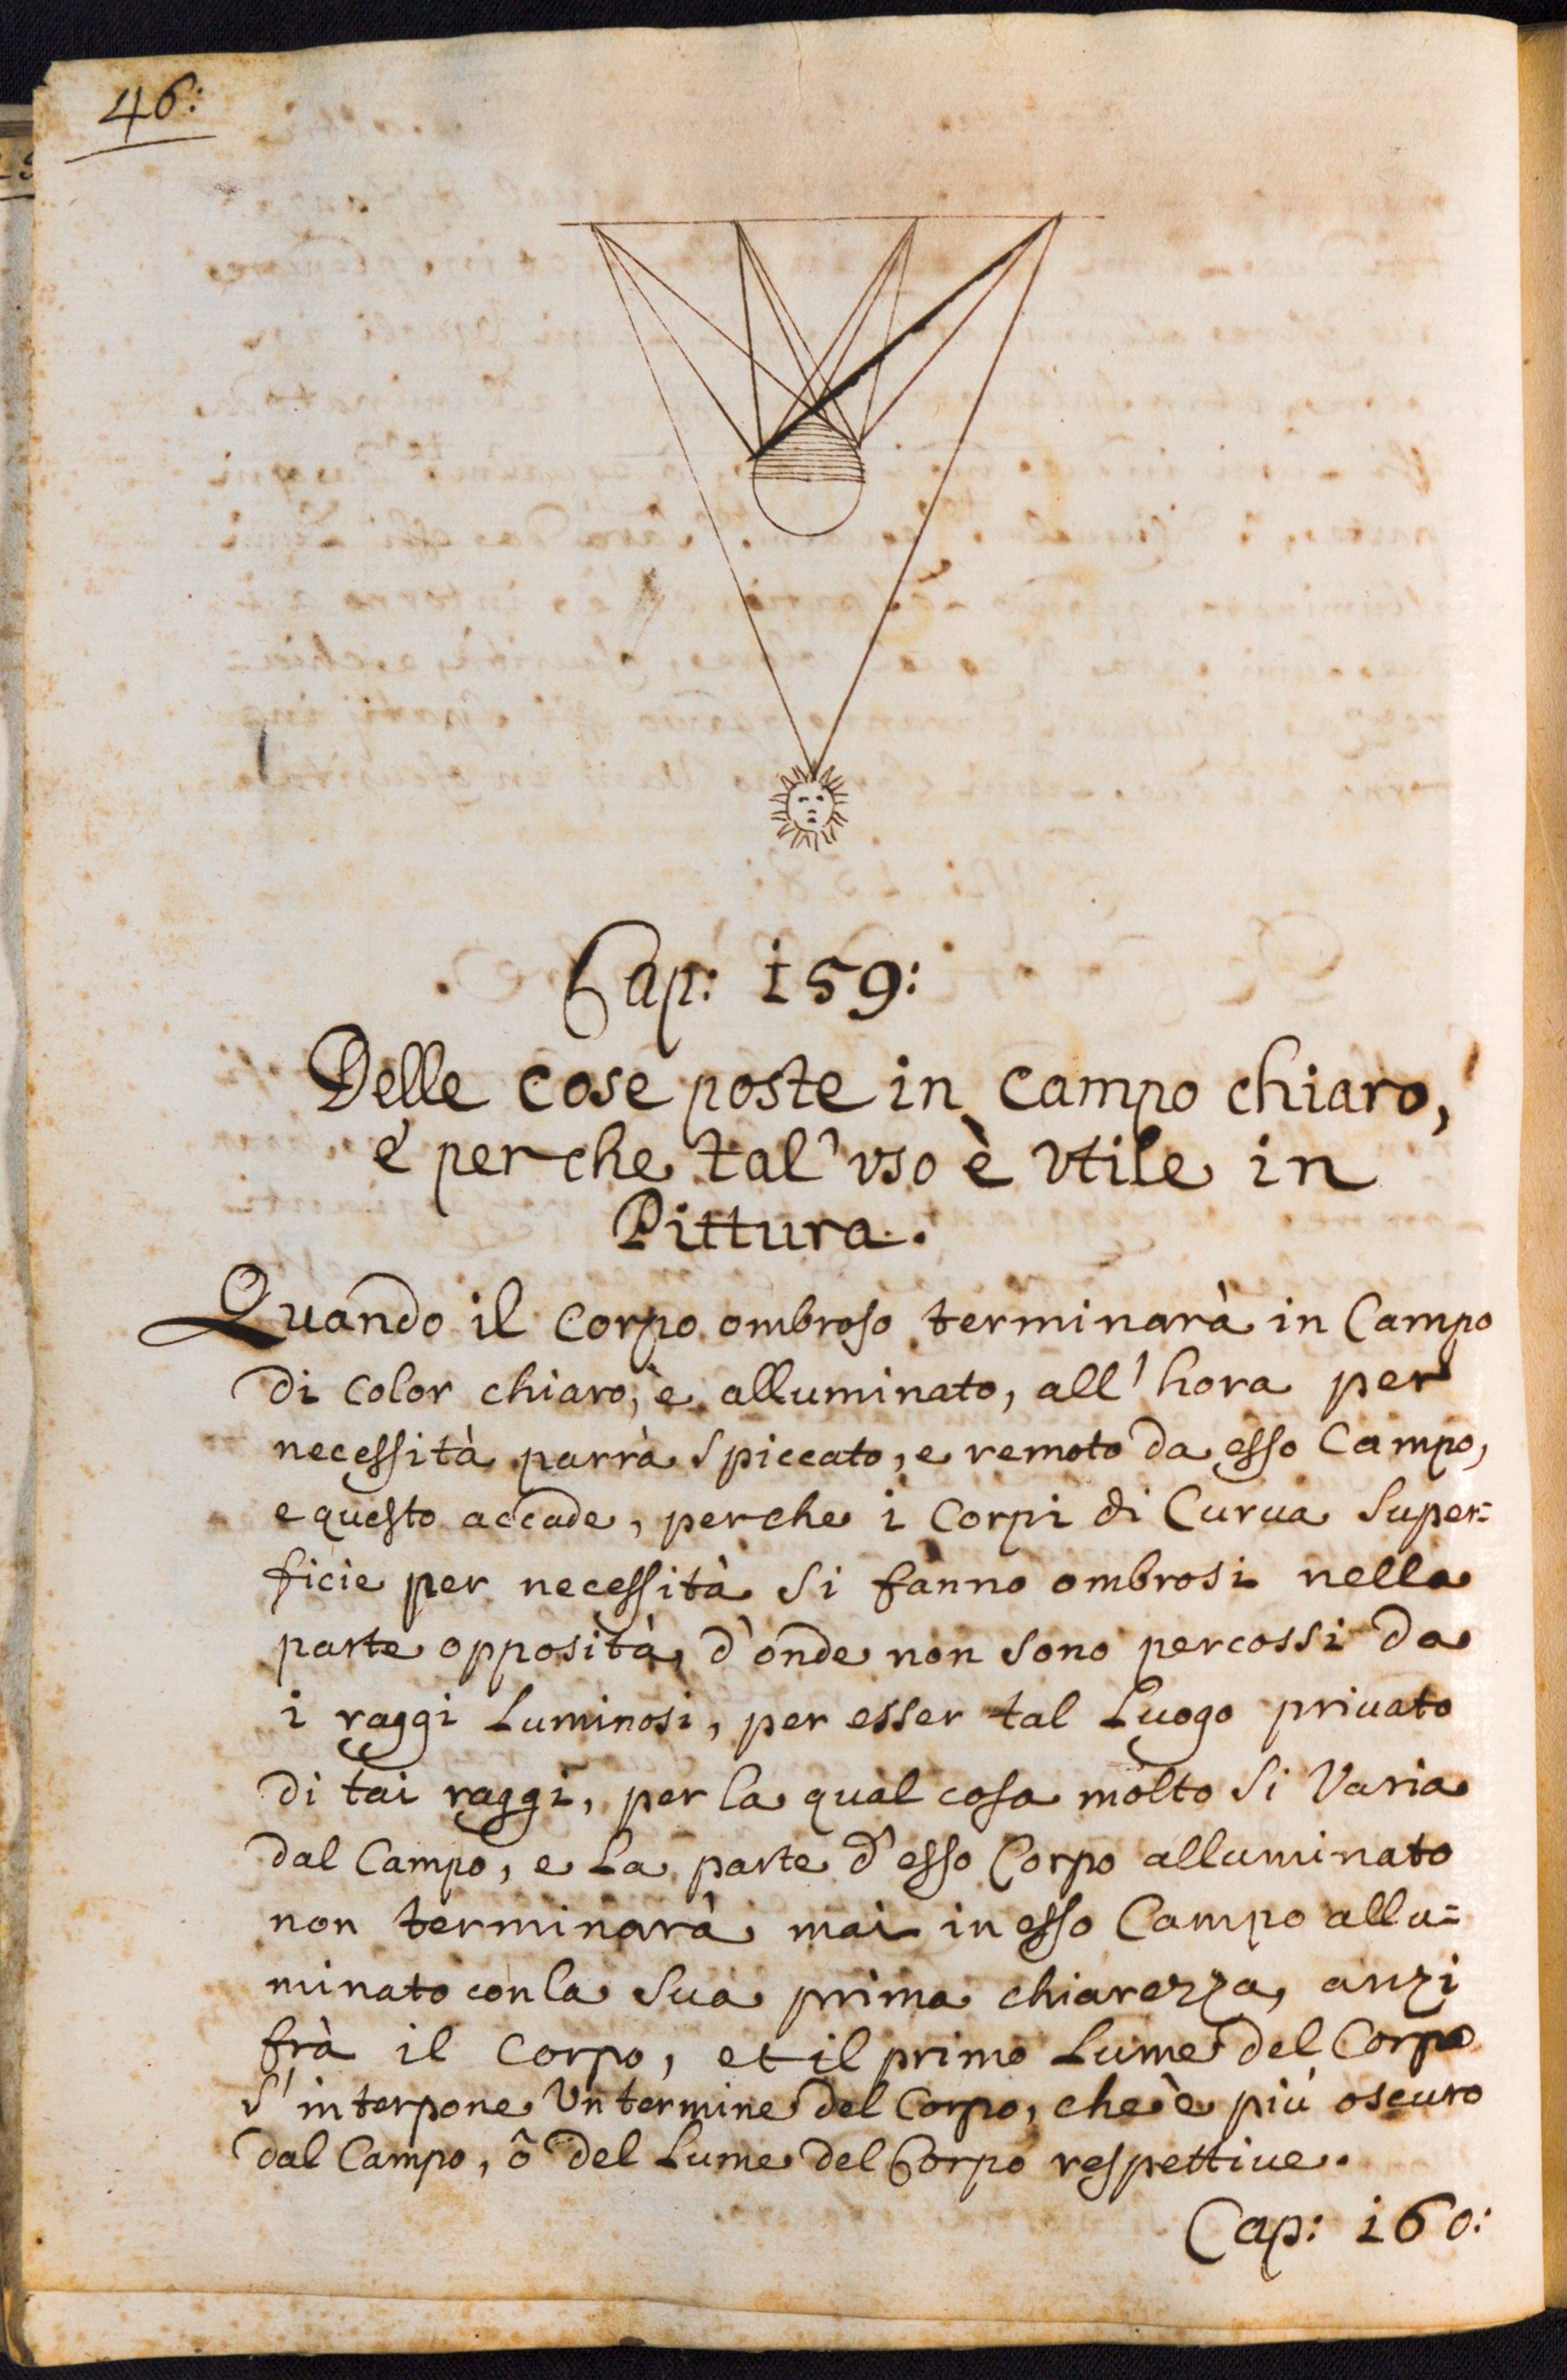 46:
Cap: 159:
Delle cose poste in campo chiaro,
e perche tal' vso è vtile in
Pittura.
Quando il corpo ombroso terminarà in Campo
di color chiaro, è alluminato, all' hora per
necessità parrà spiccato, e remoto da esso Campo,
e questo accade, perche i Corpi di Curua Super=
ficie per necessità si fanno ombrosi nella
parte opposità, d'onde non sono percossi da
i raggi Luminosi, per esser tal Luogo priuato
di tai raggi, per la qual cosa molto si Varia
dal Campo, e La parte d'esso Corpo alluminato
non terminarà mai in esso Campo allu=
minato con la sua prima chiarezza, anzi
frà il Corpo, et il primo Lume del Corpo
s'interpone Un termine del Corpo, che è più oscuro
dal Campo, ô del Lume del Corpo respettiue.
Cap: 160: